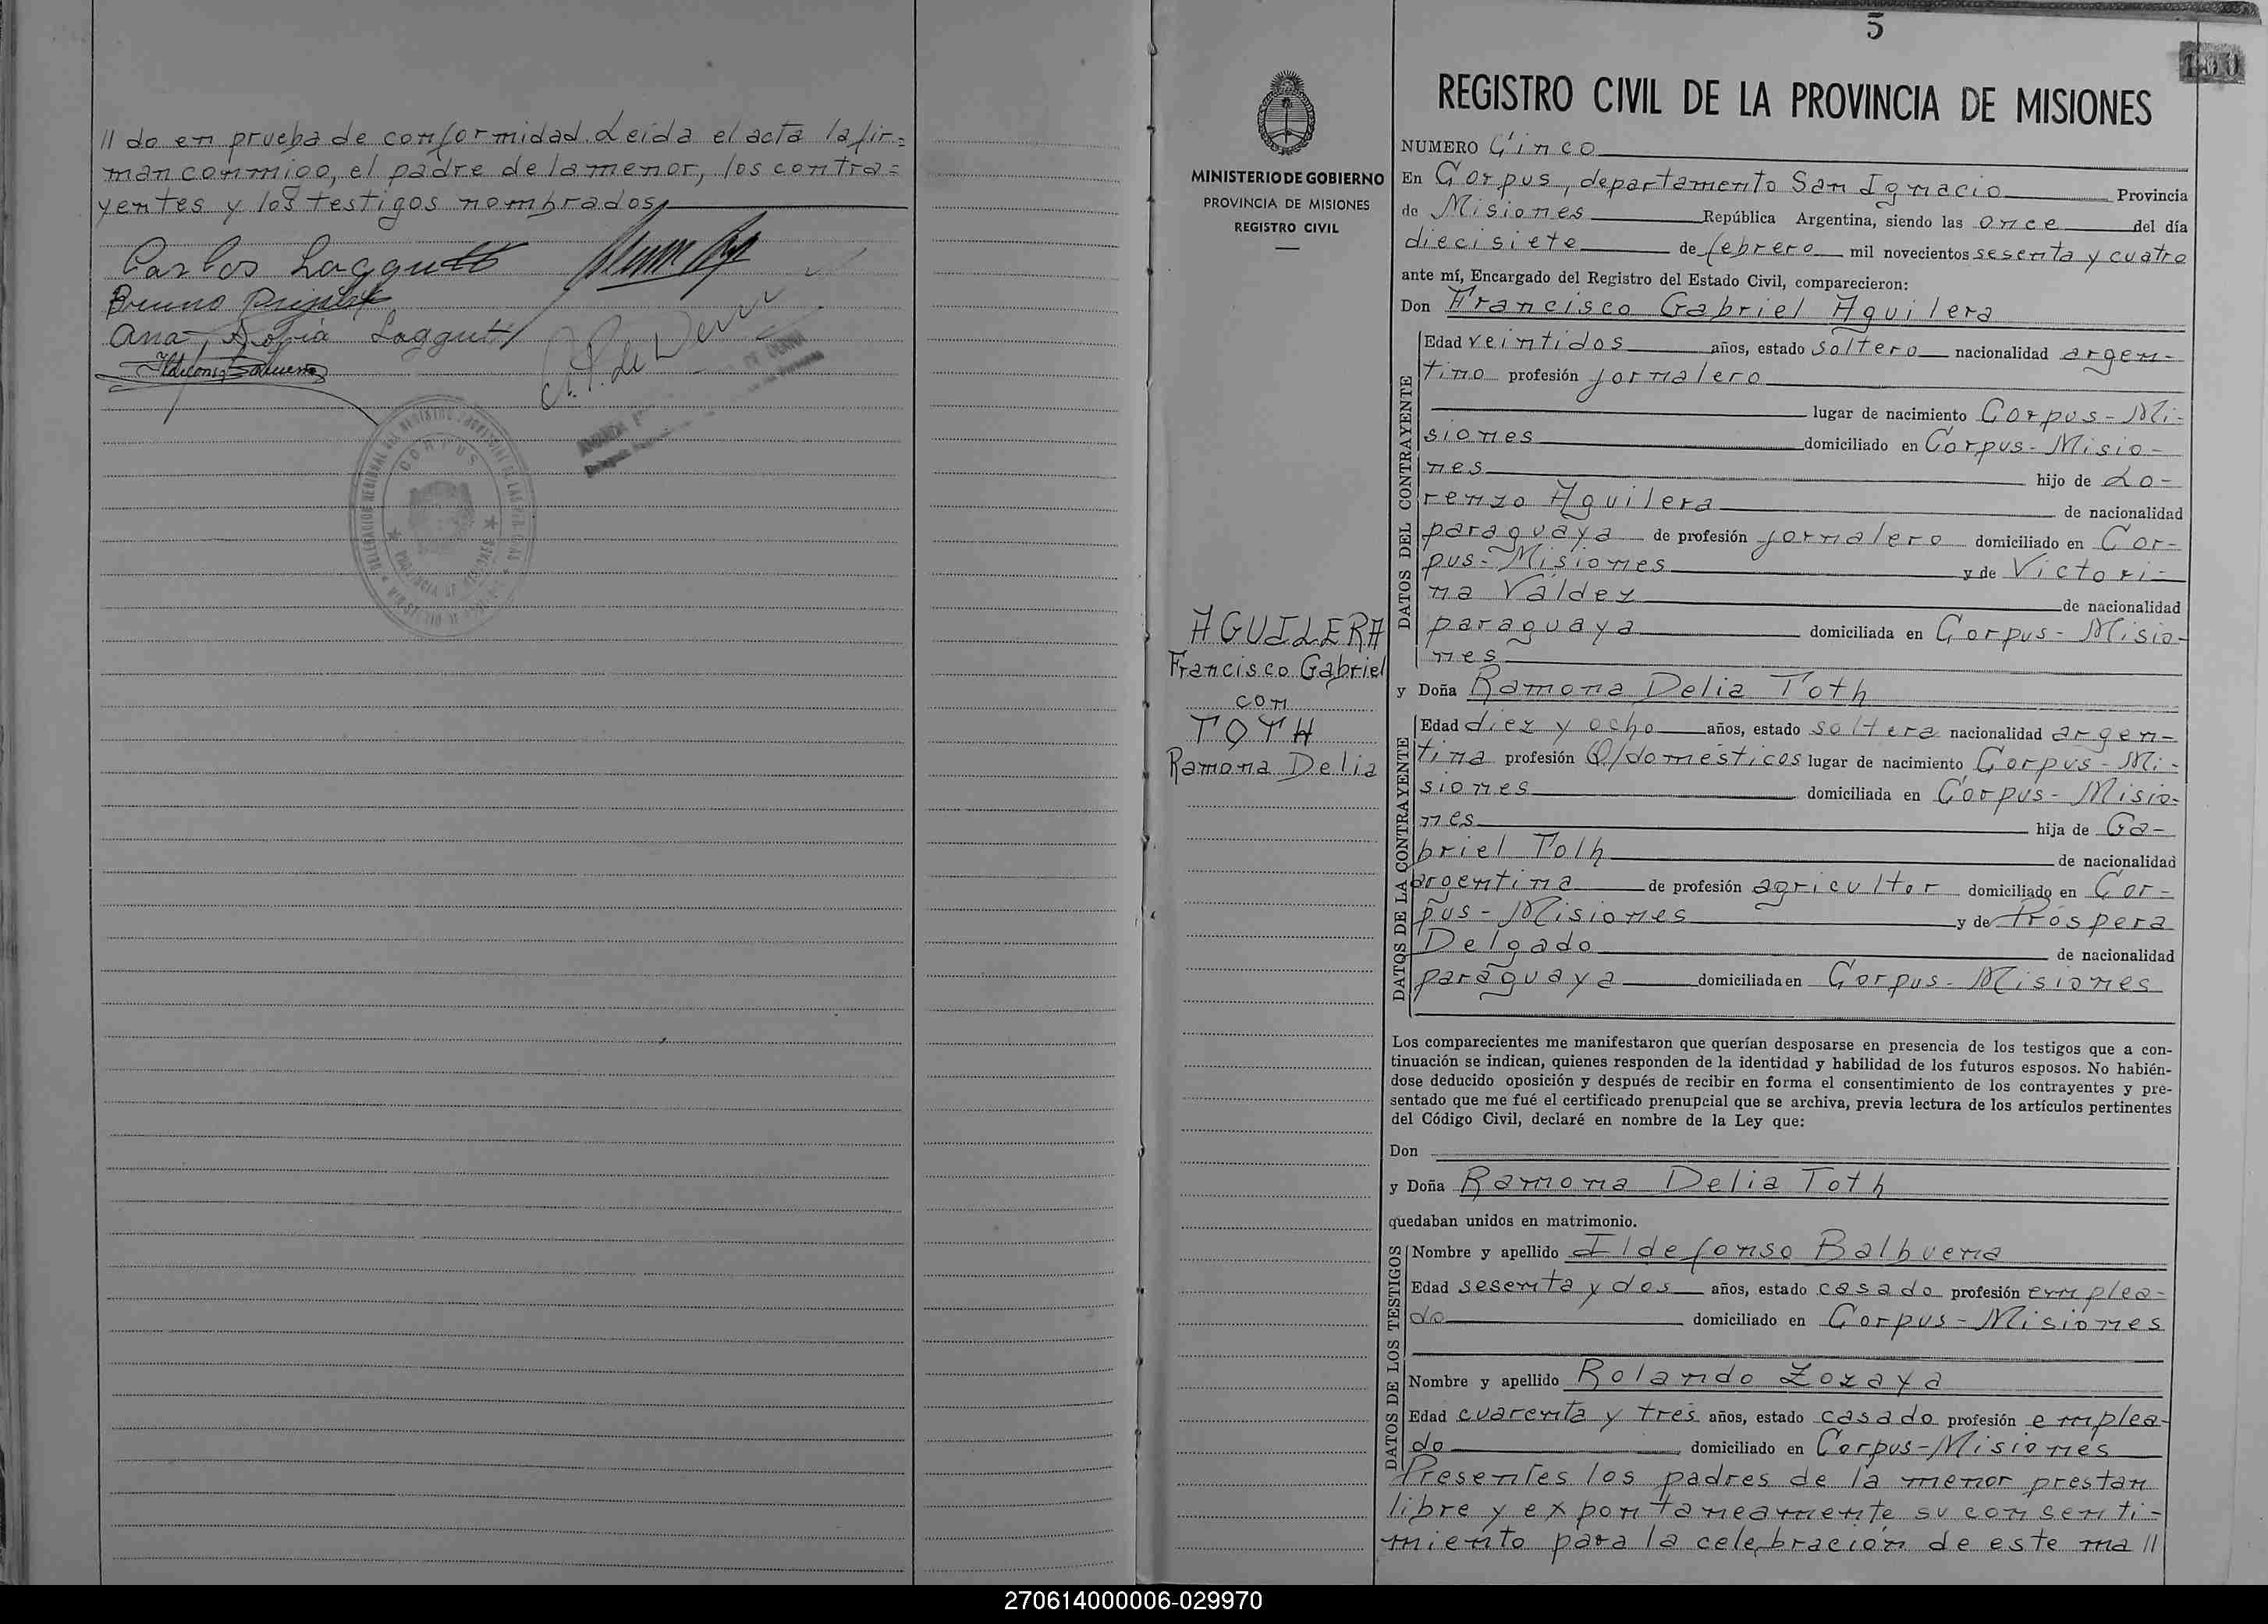 // do en prueba de conformidad. Leída el acta la fir=
man conmigo, el padre de la menor, los contra=
yentes y los testigos nombrados,
Carlos Laggutt
Bruno
Ana Sofia Laggutt
CORPUS
5
REGISTRO CIVIL DE LA PROVINCIA DE MISIONES
MINISTERIO DE GOBIERNO
PROVINCIA DE MISIONES
REGISTRO CIVIL
AGUILERA
Francisco Gabriel
con
TOTH
Ramona Delia
NUMERO Cinco
En Corpus, departamento San Ignacio Provincia
de Misiones República Argentina, siendo las once del día
diecisiete de febrero mil novecientos sesenta y cuatro
ante mí, Encargado del Registro del Estado Civil, comparecieron:
Don Francisco Gabriel Aguilera
DATOS DEL CONTRAYENTE
Edad veintidos años, estado soltero nacionalidad argen-
tino profesión jornalero
lugar de nacimiento Corpus-Mi-
siones domiciliado en Corpus-Misio-
nes hijo de Lo-
renzo Aguilera de nacionalidad
paraguaya de profesión jornalero domiciliado en Cor-
pus-Misiones y de Victori-
na Váldez de nacionalidad
paraguaya domiciliada en Corpus-Misio-
nes
y Doña Ramona Delia Toth
DATOS DE LA CONTRAYENTE
Edad diez y ocho años, estado soltera nacionalidad argen-
tina profesión Q/domésticos lugar de nacimiento Corpus-Mi-
siones domiciliada en Corpus-Misio-
nes hija de Ga-
briel Toth de nacionalidad
argentina de profesión agricultor domiciliado en Cor-
pus-Misiones y de Próspera
Delgado de nacionalidad
paraguaya domiciliada en Corpus-Misiones
Los comparecientes me manifestaron que querían desposarse en presencia de los testigos que a con-
tinuación se indican, quienes responden de la identidad y habilidad de los futuros esposos. No habién-
dose deducido oposición y después de recibir en forma el consentimiento de los contrayentes y pre-
sentado que me fué el certificado prenupcial que se archiva, previa lectura de los artículos pertinentes
del Código Civil, declaré en nombre de la Ley que:
Don
y Doña Ramona Delia Toth
quedaban unidos en matrimonio.
DATOS DE LOS TESTIGOS
Nombre y apellido Ildefonso Balbuena
Edad sesenta y dos años, estado casado profesión emplea-
do domiciliado en Corpus-Misiones
Nombre y apellido Rolando Zozaya
Edad cuarenta y tres años, estado casado profesión emplea-
do domiciliado en Corpus-Misiones
Presentes los padres de la menor prestan
libre y expontaneamente su consenti-
miento para la celebración de este ma //
270614000006-029970